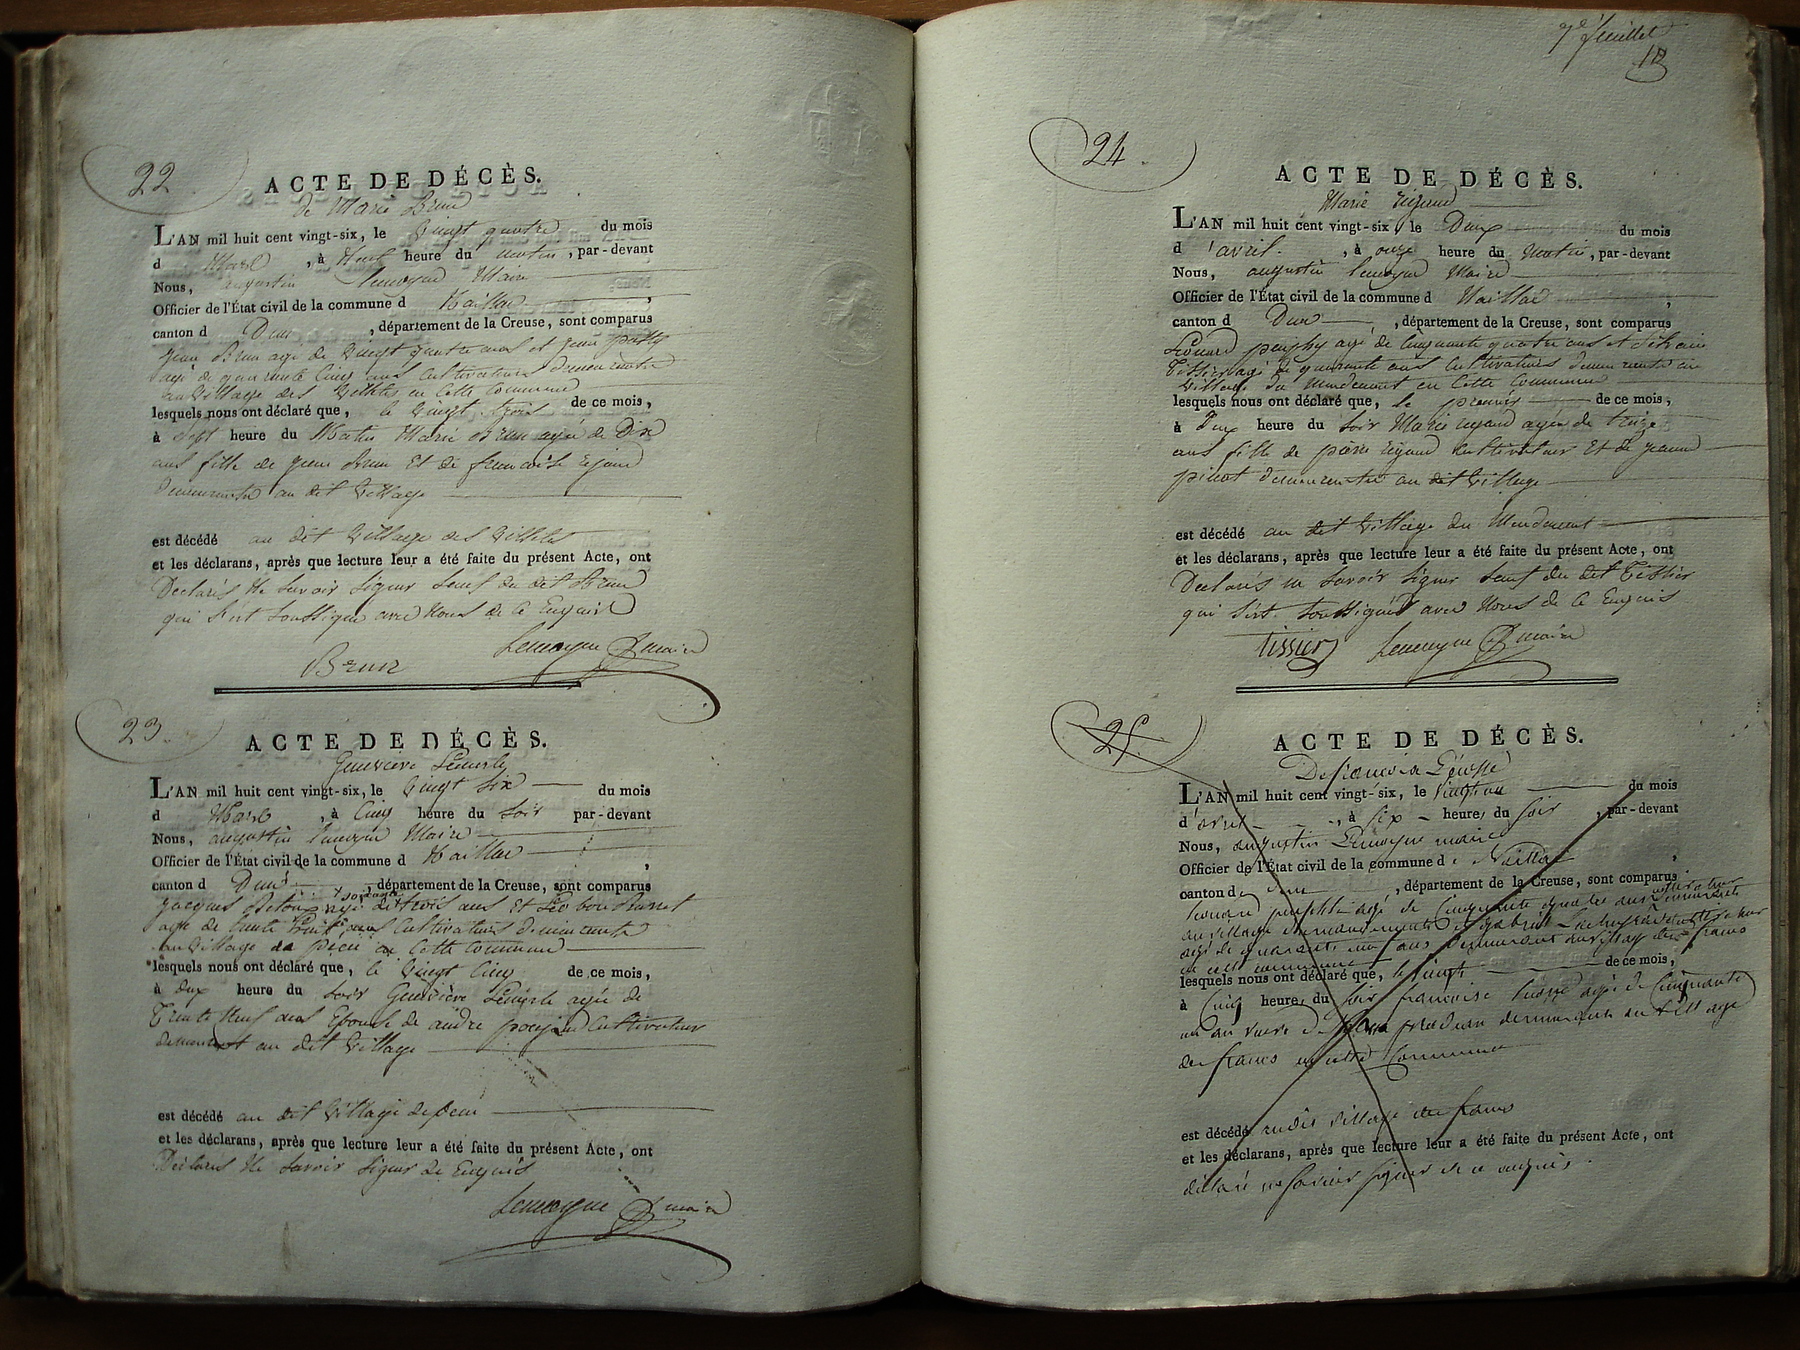 22
ACTE DE DÉCÈS.
de Marie Brun
L'AN mil huit cent vingt-six, le Vingt quatre du mois
d Mars, à Neuf heure du matin, par-devant
Nous, augustin lemoyne Maire
Officier de l'État civil de la commune d Naillat,
canton d Dun, département de la Creuse, sont comparus
jean Brun agé de Vingt quatre ans et jean
agé de quarante Cinq ans Cultivateurs demeurents
au Village des Villetes en Cette Commune
lesquels nous ont déclaré que, le Vingt trois de ce mois,
à Sept heure du Matin Marie Brun agée de Dix
ans fille de jean Brun Et de francoise rejaud
demeurents au dit Village
est décédé au dit Village des Villetes
et les déclarans, après que lecture leur a été faite du présent Acte, ont
Declarés Ne Savoir Signer Sauf du dit Brun
qui S'est Soussigné avec Nous de Ce Enquis
Brun Lemoyne maire
23
ACTE DE DÉCÈS.
Genevieve Lemerle
L'AN mil huit cent vingt-six, le Vingt Six du mois
d Mars, à Cinq heure du Soir par-devant
Nous, augustin lemoyne Maire
Officier de l'État civil de la commune d Naillat,
canton d Dun, département de la Creuse, sont comparus
soixante
jacques agé de trois ans Et
agé de trente huit ans Cultivateurs demeurents
au Village de en Cette Commune
lesquels nous ont déclaré que, le Vingt Cinq de ce mois,
à Dux heure du Soir Geneviève Lemerle agée de
Trente Neuf ans Epouse de andre Cultivateur
demeurent au dit Village
est décédé au dit Village de
et les déclarans, après que lecture leur a été faite du présent Acte, ont
Declarés Ne Savoir Signer de Enquis
Lemoyne maire
7e feuillet
24
ACTE DE DÉCÈS.
Marie rigaud
L'AN mil huit cent vingt-six, le Dux du mois
d'avril, à onze heure du Matin, par-devant
Nous, augustin lemoyne Maire
Officier de l'État civil de la commune d Naillat,
canton d Dun, département de la Creuse, sont comparus
Léonard agé de Cinquante quatre ans et Silvain
Tissier agé de quarante ans Cultivateurs demeurents au
Village du en Cette Commune
lesquels nous ont déclaré que, le premier de ce mois,
à Dux heure du Soir Marie rigaud agée de treize
ans fille de pierre rigaud Cultivateur Et de jeanne
pinot demeurentes au dit Village
est décédé au dit Village du
et les déclarans, après que lecture leur a été faite du présent Acte, ont
Declarés ne Savoir Signer Sauf du dit Tissier
qui S'est Soussigné avec Nous de Ce Enquis
tissier Lemoyne maire
25
ACTE DE DÉCÈS.
De francoise
L'AN mil huit cent vingt-six, le vingt un du mois
d'avril, à six heure du soir, par-devant
Nous, augustin Lemoyne maire
Officier de l'État civil de la commune de Naillat,
canton de Dun, département de la Creuse, sont comparus
Leonard agé de Cinquante quatre ans
au village et gabriel cultivateur
agé de quarante un ans demeurant au village des francs
en cette commune
lesquels nous ont déclaré que, le vingt de ce mois,
à Cinq heure du soir francoise agée de Cinquante
un an demeurante au village
des francs en cette Commune
est décédé audit village des francs
et les déclarans, après que lecture leur a été faite du présent Acte, ont
déclaré ne savoir signer de ce enquis